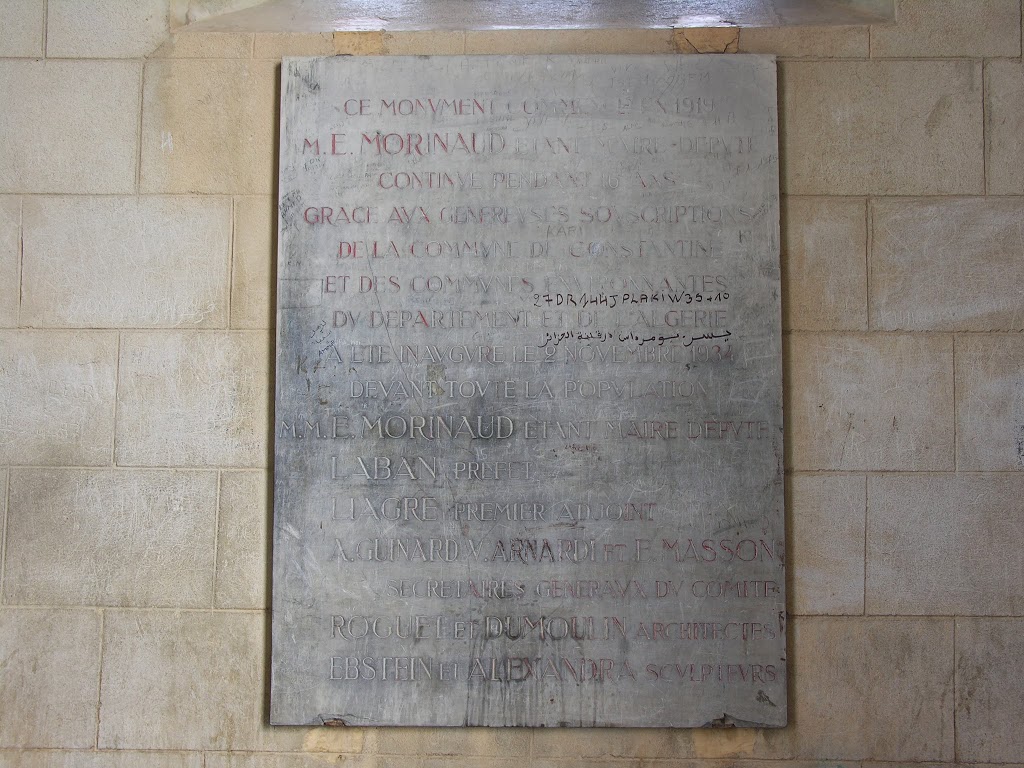 CE MONVMENT COMMENCE EN 1919
M. E. MORINAUD ETANT MAIRE-DEPVTE
CONTINVE PENDANT ANS
GRACE AVX GENEREVSES SOVSCRIPTIONS
DE LA COMMVNE DE CONSTANTINE
ET DES COMMVNES ENVIRONNANTES
DV DEPARTEMENT ET DE L'ALGERIE
A ETE INAVGVRE LE 2 NOVEMBRE 1934
DEVANT TOVTE LA POPVLATION
M.M. E. MORINAUD ETANT MAIRE DEPVTE
LABAN PREFET
LIAGRE PREMIER ADJOINT
A. GUINARD. V. ARNARDI ET F. MASSON
SECRETAIRES GENERAVX DV COMITE
ROGUET ET DUMOULIN ARCHITECTES
EBSTEIN ET ALEXANDRA SCVLPTEVRS